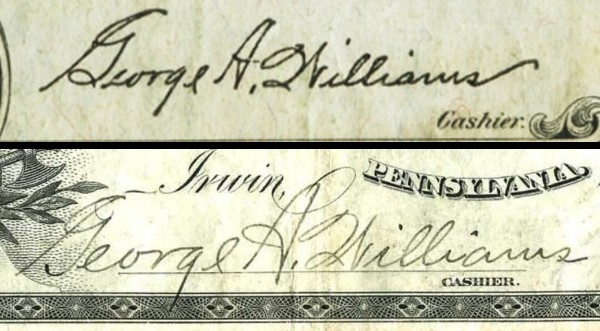 George A. Williams
Cashier.
Irwin, PENNSYLVANIA,
George A. Williams
CASHIER.